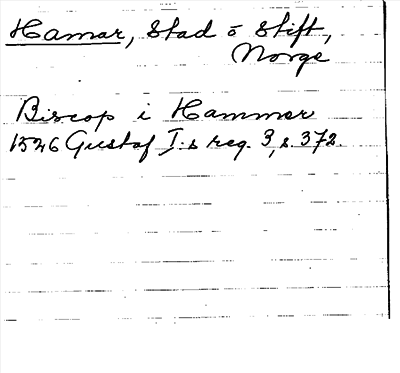 Hamar, Stad o Stift,
Norge
Biscop i Hammer
1526 Gustaf I:s reg. 3, s. 372.